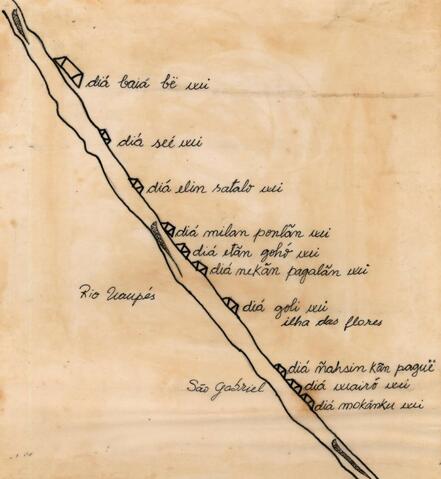 diá baiá bë wi
diá seé wi
diá elin satalo wi
diá milan ponlãn wi
diá etãn gohó wi
diá nekãn pagalãn wi
Rio Uaupés
diá goli wi
ilha das flores
diá ñahsin kãn paguë
São Gabriel
diá wairó wi
diá mokãnku wi